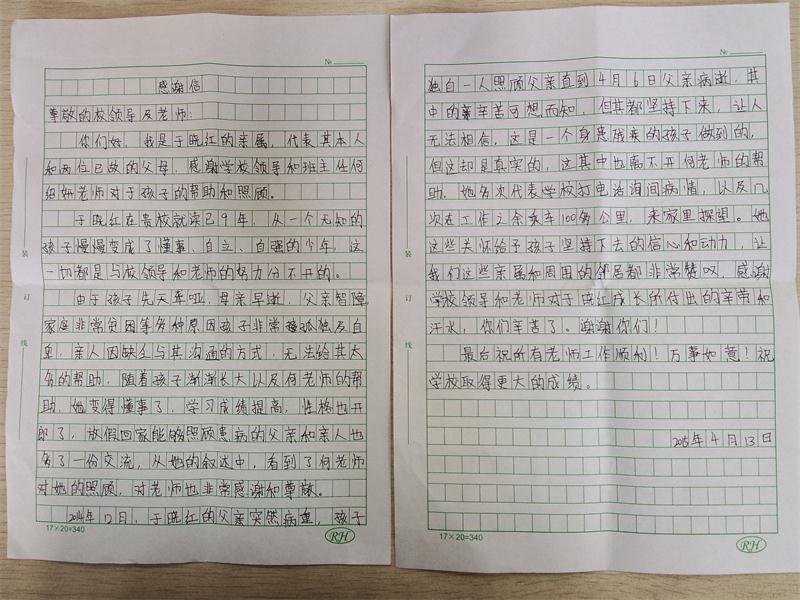 №
感谢信
尊敬的校领导及老师：
你们好，我是于晓红的亲属，代表其本人
和两位已故的父母，感谢学校领导和班主任何
绍妍老师对于孩子的帮助和照顾。
于晓红在贵校就读已9年，从一个无知的
孩子慢慢变成了懂事、自立、自强的少年，这
一切都是与校领导和老师的努力分不开的。
由于孩子先天聋哑，母亲早逝，父亲智障，
家庭非常贫困等多种原因孩子非常孤独及自
卑，亲人因缺乏与其沟通的方式，无法给其太
多的帮助，随着孩子渐渐长大以及何老师的帮
助，她变得懂事了，学习成绩提高，性格也开
郎了，放假回家能够照顾患病的父亲和亲人也
多了一份交流，从她的叙述中，看到了何老师
对她的照顾，对老师也非常感谢和尊敬。
2014年12月，于晓红的父亲突然病重，孩子
17×20=340
RH
装
订
线
№
独自一人照顾父亲直到4月6日父亲病逝，其
中的艰辛苦可想而知，但其都坚持下来，让人
无法相信，这是一个身患残疾的孩子做到的，
但这却是真实的，这其中也离不开何老师的帮
助，她多次代表学校打电话询问病情，以及几
次在工作之余乘车100多公里，来家里探望。她
这些关怀给予孩子坚持下去的信心和动力，让
我们这些亲属和周围的邻居都非常赞叹，感谢
学校领导和老师对于晓红成长所付出的辛劳和
汗水，你们辛苦了。谢谢你们！
最后祝所有老师工作顺利！万事如意！祝
学校取得更大的成绩。
2015年4月13日
17×20=340
RH
装
订
线